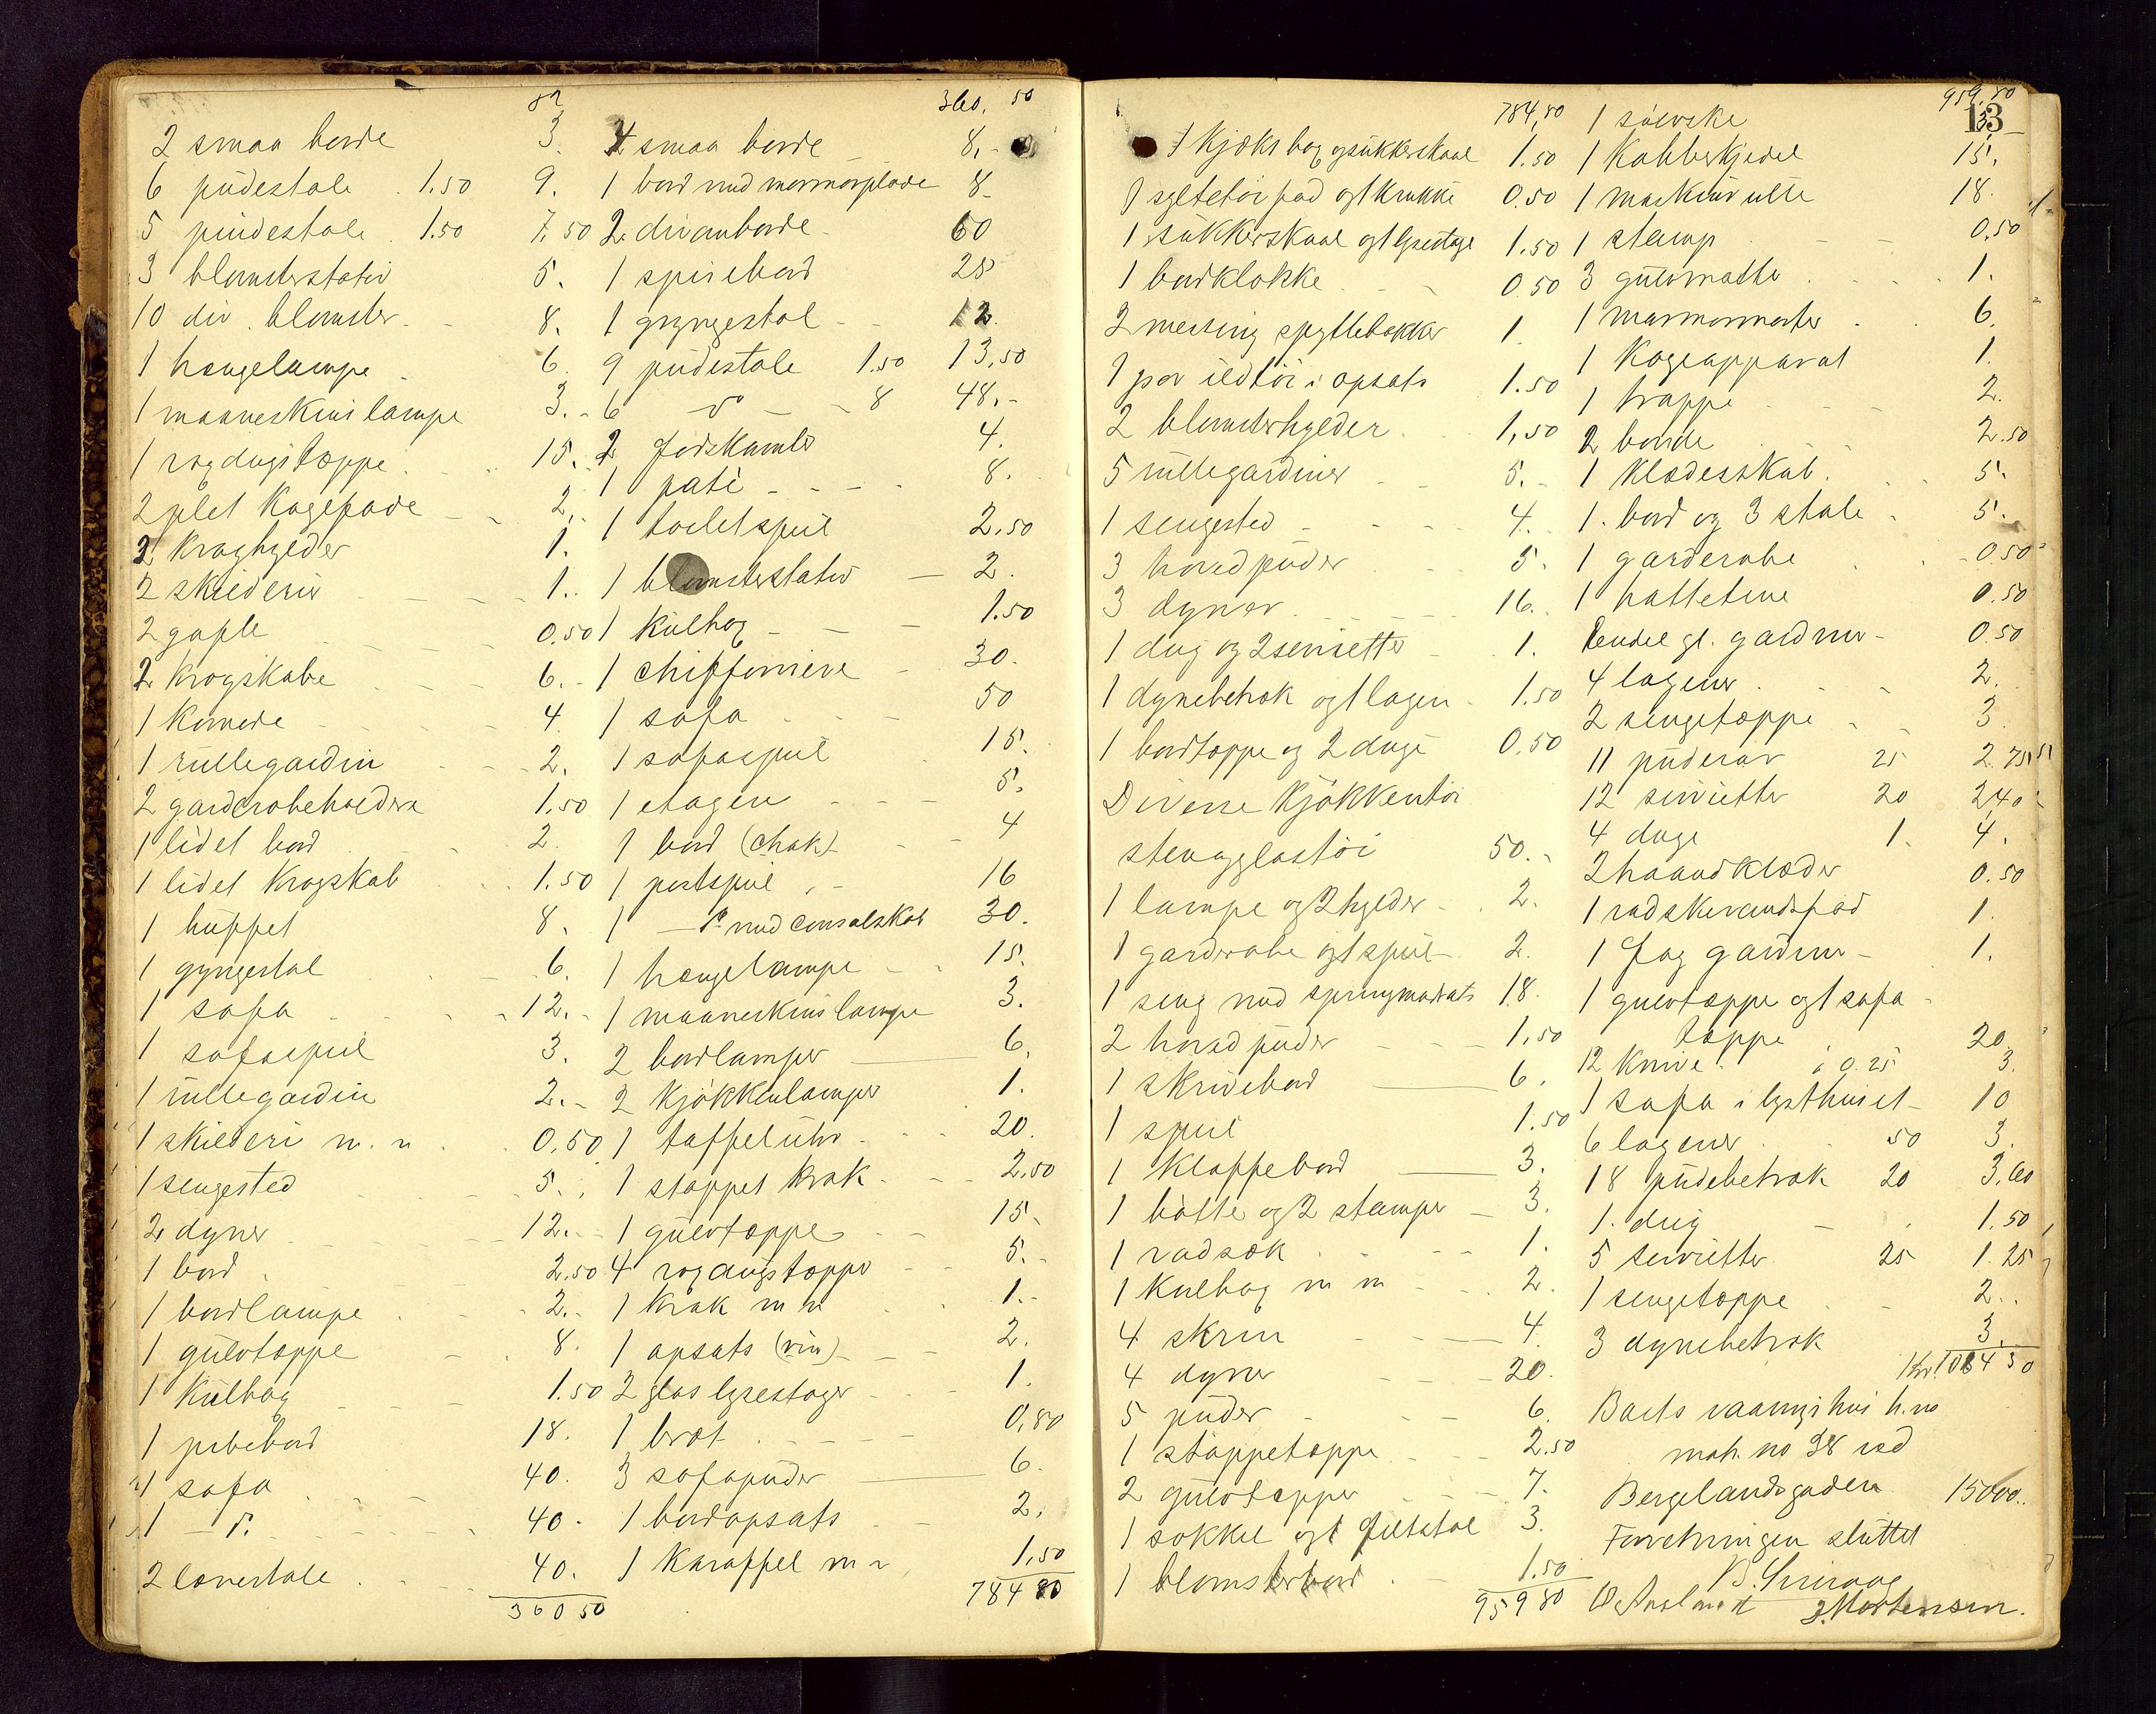 82
2 smaa borde 3.
6 pudestole 1.50 9.
5 pindestole 1.50 7.50
3 blomsterstativ 5.
10 div. blomster 8.
1 hængelampe 6.
1 maaneskinslampe 3.-
1 vogdugstæppe 15.
2 plet kagefade 2.-
2 kraghylder 1.
2 skilderier 1.
2 gafle 0.50
2 krogskabe 6.-
1 komode 4.
1 rullegardin 2.
2 garderobeholdere 1.50
1 lidet bord 2.
1 lidet krogskab 1.50
1 buffet 8.
1 gyngestol 6.
1 sofa 12.-
1 sofaspeil 3.
1 rullegardin 2.-
1 skilderi m.m. 0.50
1 sengested 5.
2 dyner 12.-
1 bord 2.50
1 bordlampe 2.-
1 gulvtæppe 8.
1 kulbog 1.50
1 pibebord 18.
1 sofa 40.
1 — do 40.
2 lænestole 40.
360 50
360. 50
4 smaa borde 8.-
1 bord med marmorplade 8.-
2 divanborde 60
1 spisebord 25
1 gyngestol 12.
9 pudestole 1.50 13.50
6 do 8 48.-
2 fodskamler 4.
1 paté 8.
1 toiletspeil 2.50
1 blomsterstativ 2.
1 kulbog 1.50
1 chiffoniere 30.
1 sofa 50
1 sofaspeil 15.
1 etagere 5.
1 bord (chak) 4
1 portspeil 16
1 — do med consolskab 30.
1 hængelampe 15.
1 maaneskinslampe 3.
2 bordlamper 6.
2 kjøkkenlamper 1.
1 taffeluhr 20.
1 stoppet krak 2.50
1 gulvtæppe 15.
4 vogdugstæpper 5.-
1 krak m m 1.-
1 opsats (vin) 2.
2 glas lysestager 1.
1 bræt 0.80
3 sofapuder 6.
1 bordopsats 2.
1 karaffel m m 1.50
784 80
784,80
1 kjæksbog og sukkerskaal 1.50
1 syltetøifad og 1 krukke 0.50
1 sukkerskaal og 1 lysestage 1.50
1 bordklokke 0.50
2 messing spyttebakker 1.
1 par ildtøi i opsats 1.50
2 blomsterhylder 1.50
5 rullegardiner 5.-
1 sengested 4.
3 hovedpuder 5.
3 dyner 16.
1 dug og 2 servietter 1.
1 dynebetræk og 1 lagen 1.50
1 bordtæppe og 2 duge 0.50
Diverse kjøkkentøi
sten og glastøi 50.-
1 lampe og 2 hylder 2.
1 garderobe og 1 speil 2.
1 seng med springmadrats 18.
2 hovedpuder 1.50
1 skrivebord 6.
1 speil 1.50
1 klappebord 3.
1 bøtte og 2 stamper 3.
1 vadsæk 1.
1 kulbog m m 2.
4 skrin 4.
4 dyner 20.
5 puder 6.
1 stoppetæppe 2.50
2 gulvtæpper 7.
1 sokkel og 1 feltstol 3.
1 blomsterbord 1.50
959 80
959.80
13
1 sølvske
1 kobberkjedel 15.
1 maskinrulle 18.
1 stamp 0.50
3 gulvmatter 1.
1 marmormorter 6.
1 kogeapparat 1.
1 trappe 2.
2 borde 2.50
1 klædesskab 5.
1 bord og 3 stole 5.
1 garderobe 0.50
1 hattetine 0.50
Endel gl. gardiner 0.50
4 lagener 2.
2 sengetæppe 3.
11 pudevar 25 2.75
12 servietter 20 2.40
4 duge 1. 4.
2 haandklæder 0.50
1 vadskevandsfad 1.
1 fag gardiner 1.
1 gulvtæppe og 1 sofa-
tæppe 20
12 knive à 0.25 3.
1 sofa i lysthuset 10
6 lagener 50 3.
18 pudebetræk 20 3.60
1 dug 1.50
5 servietter 25 1.25
1 sengetæppe 2.
3 dynebetræk 3.
Kr. 1084 30
Boets vaaningshus h. no
mat. no 38 ved
Bergelandsgaden 15000.
Forretningen sluttet
J. Mortensen.